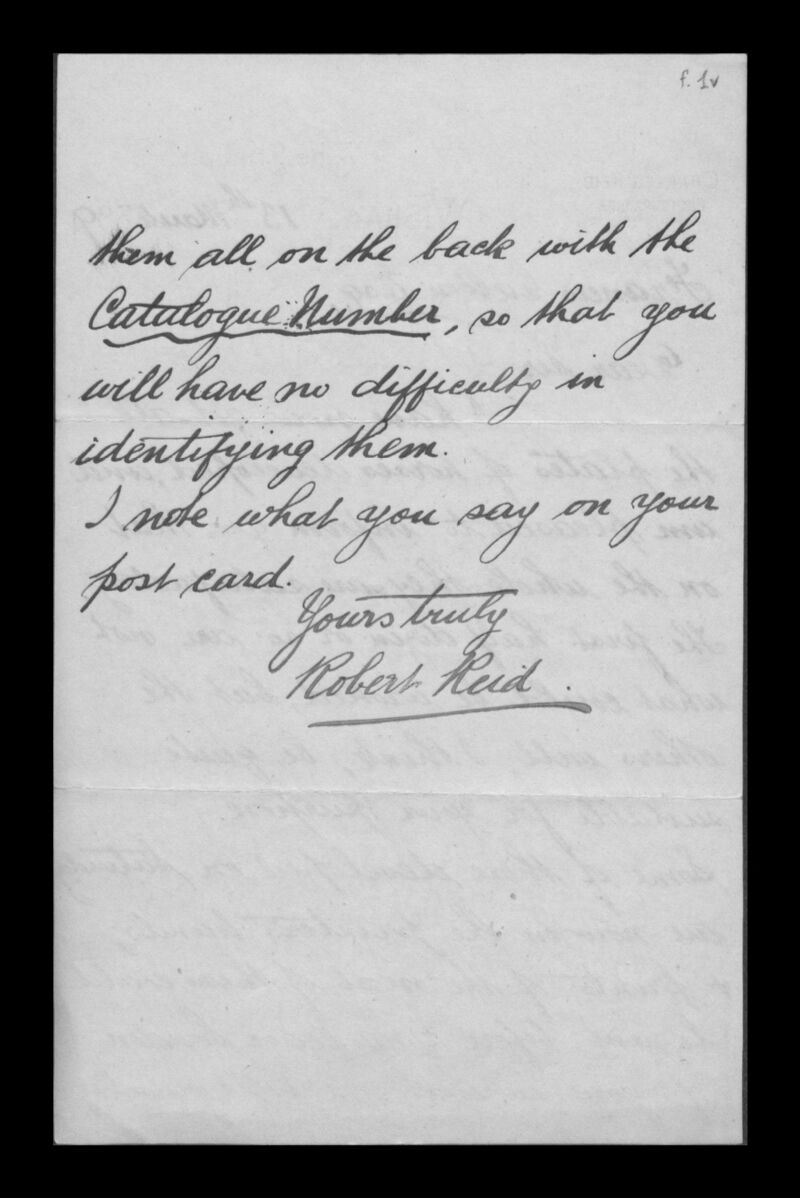 f. 1v
them all on the back with the
Catalogue Number, so that you
will have no difficulty in
identifying them.
I note what you say on your
post card.
Yours truly
Robert Reid.